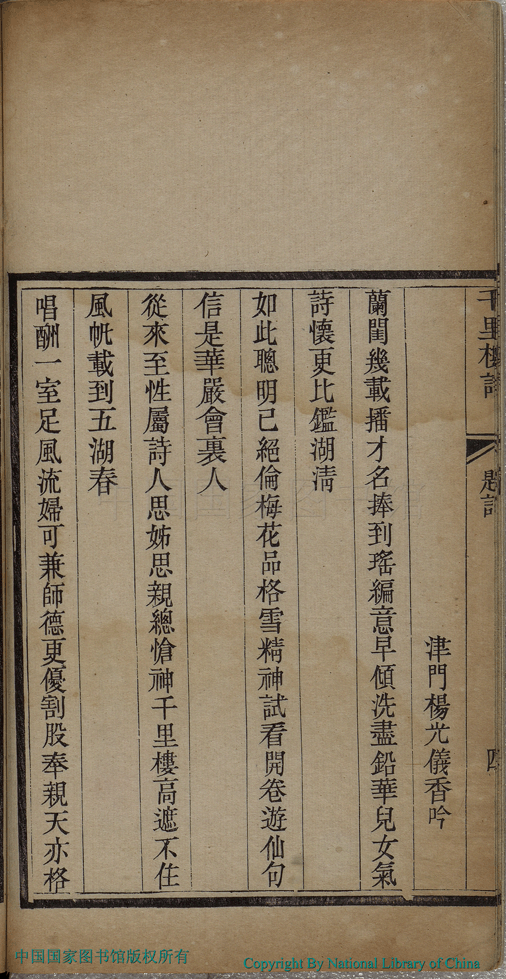 千里樓詩 題詞 四
津門楊光儀香吟
蘭閨幾載播才名捧到瑤編意早傾洗盡鉛華兒女氣
詩懷更比鑑湖清
如此聰明已絕倫梅花品格雪精神試看開卷遊仙句
信是華嚴會裏人
從來至性屬詩人思姊思親總愴神千里樓高遮不住
風帆載到五湖春
唱酬一室足風流婦可兼師德更優割股奉親天亦格
中国国家图书馆版权所有
Copyright By National Library of China